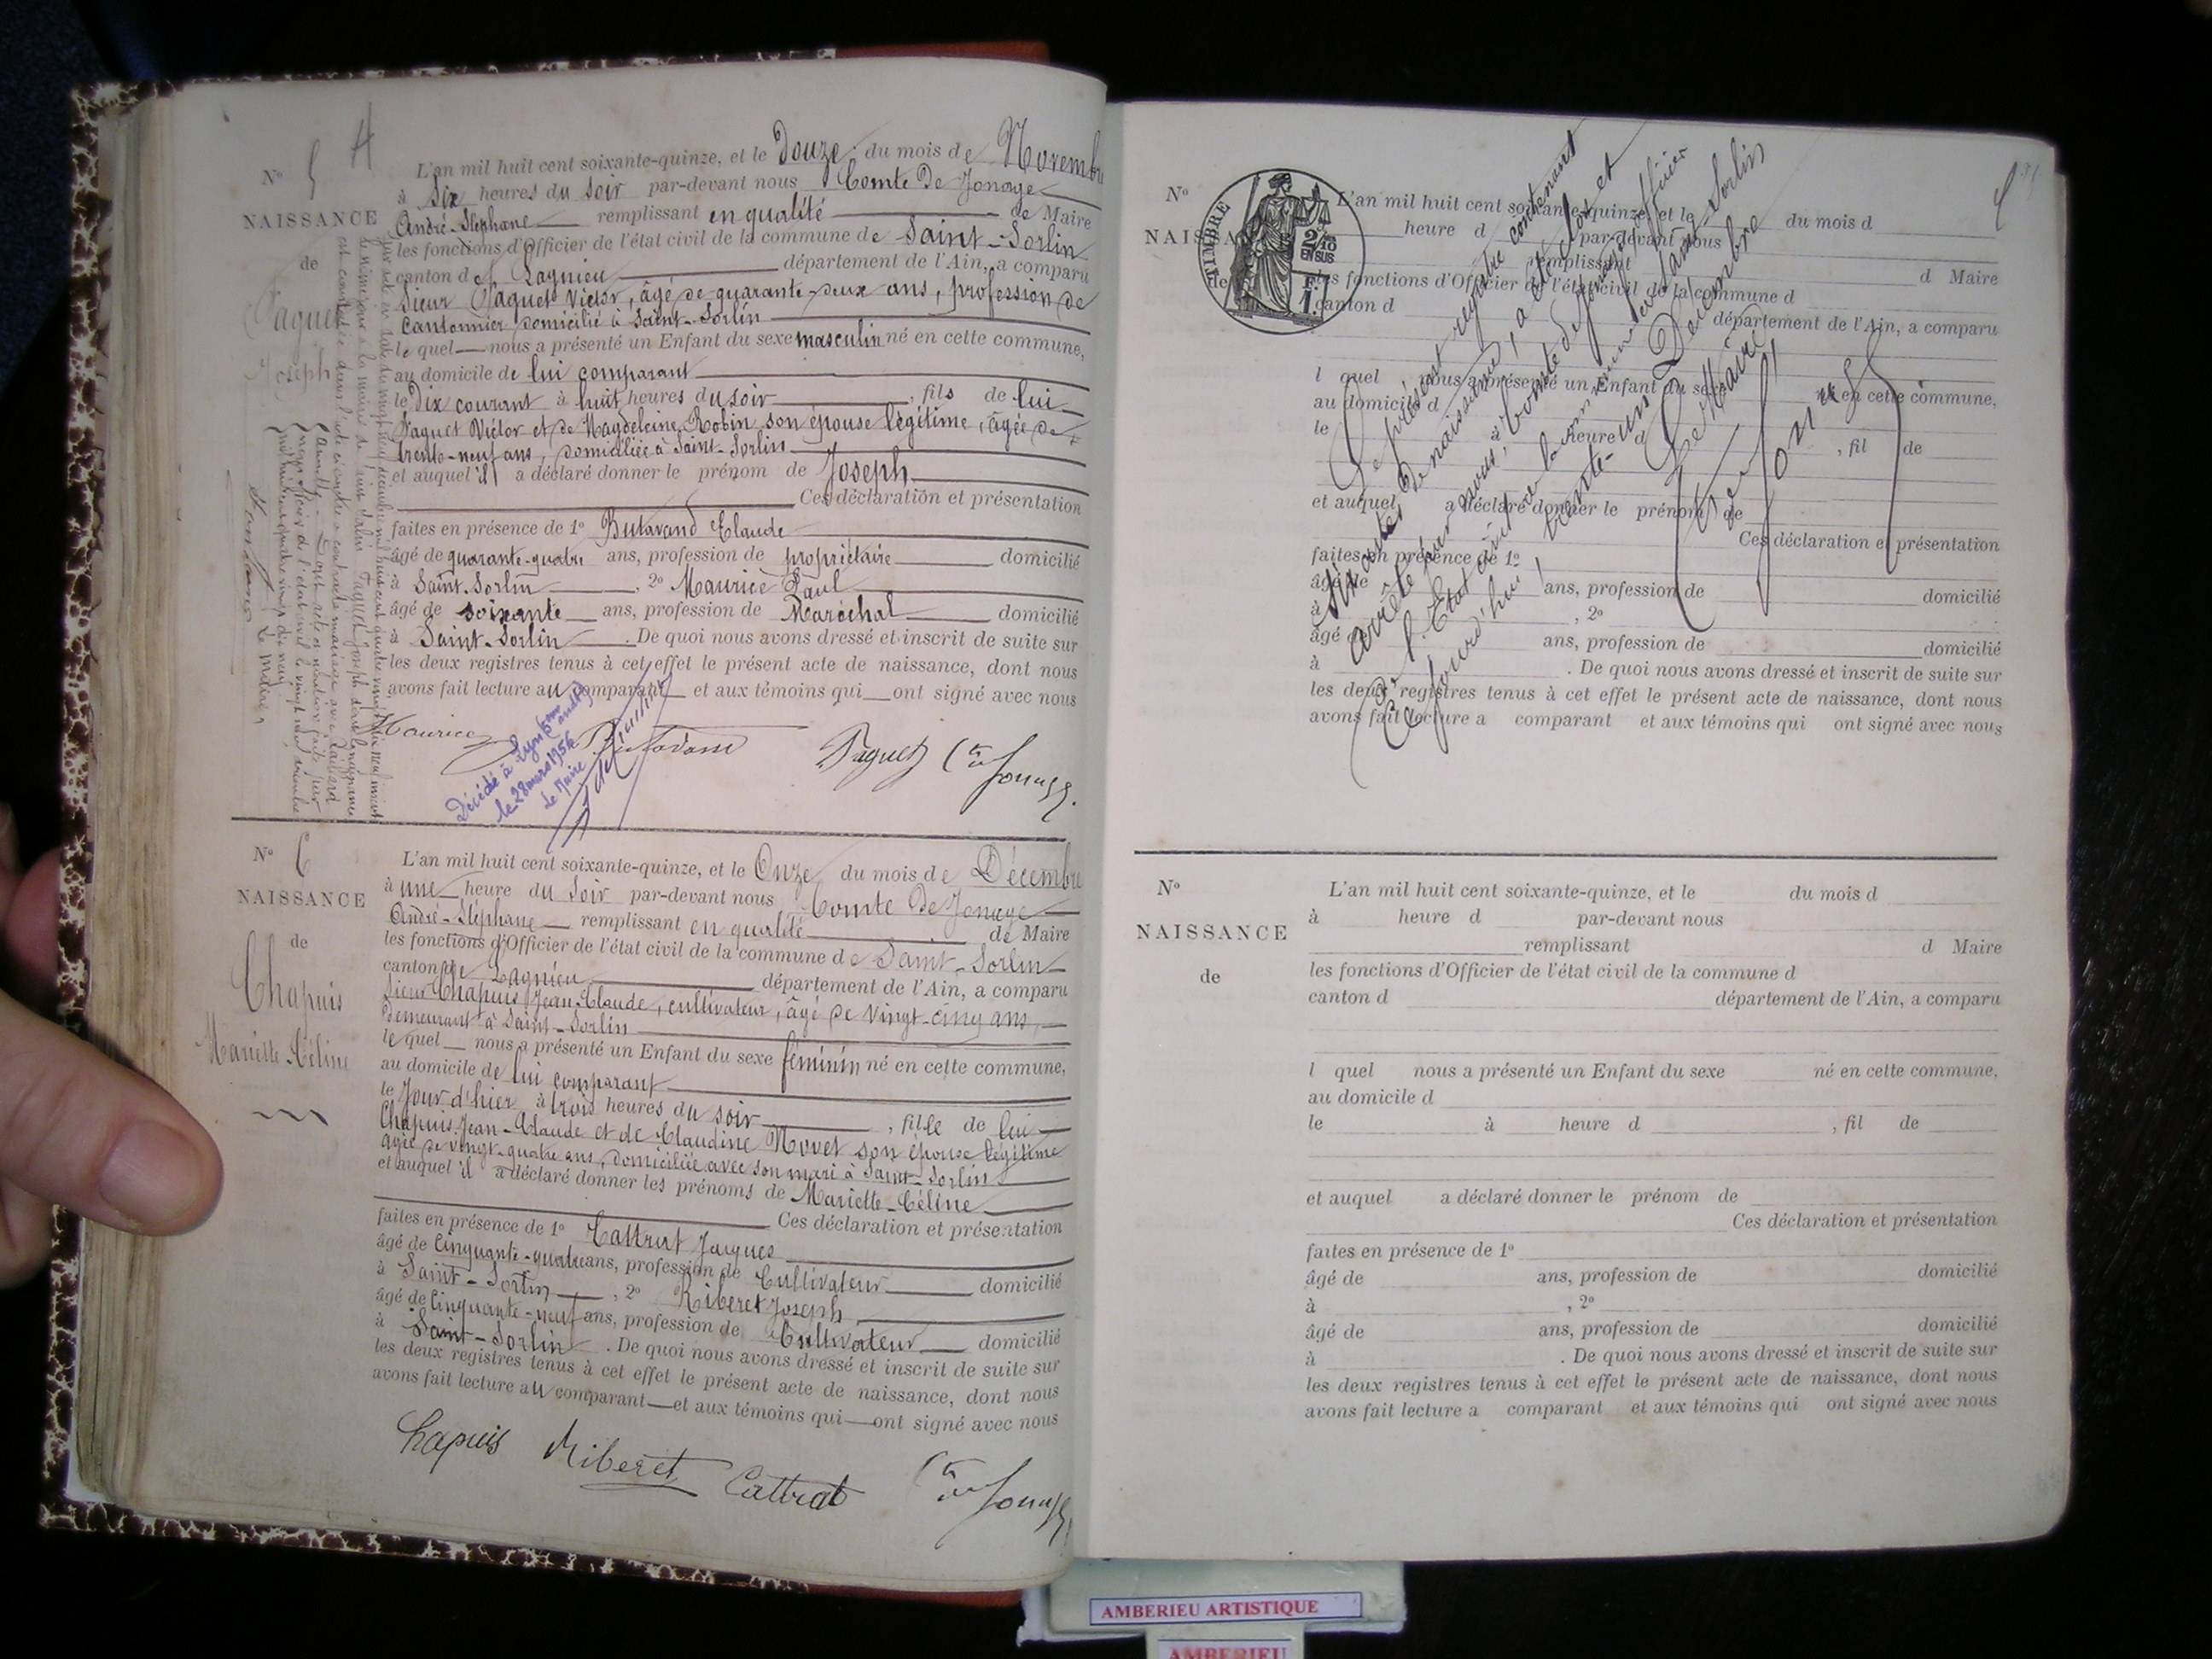 N° 5
NAISSANCE
de
Paquet
Joseph
L'an mil huit cent soixante-quinze, et le Douze du mois de Novembre
à Six heures du Soir par-devant nous Comte De Jonage
André-Stéphane remplissant en qualité de Maire
les fonctions d'Officier de l'état civil de la commune de Saint-Sorlin
canton de Lagnieu département de l'Ain, a comparu
Sieur Paquet Victor, âgé de quarante-deux ans, profession de
Cantonnier domicilié à Saint-Sorlin
le quel nous a présenté un Enfant du sexe masculin né en cette commune,
au domicile de lui comparant
le Dix courant à huit heures du soir, fils de lui
Paquet Victor et de Magdeleine Robin son épouse légitime, âgée de
trente-neuf ans, domiciliée à Saint-Sorlin
et auquel il a déclaré donner le prénom de Joseph
Ces déclaration et présentation
faites en présence de 1° Butavand Claude
âgé de quarante-quatre ans, profession de propriétaire domicilié
à Saint-Sorlin, 2° Maurice Paul
âgé de soixante ans, profession de Maréchal domicilié
à Saint-Sorlin. De quoi nous avons dressé et inscrit de suite sur
les deux registres tenus à cet effet le présent acte de naissance, dont nous
avons fait lecture au comparant et aux témoins qui ont signé avec nous
Maurice Butavand Paquet Cte de Jonage
Décédé à Lyon
le 28 mars 1956
Le Maire
N° 6
NAISSANCE
de
Chapuis
Mariette-Céline
L'an mil huit cent soixante-quinze, et le Onze du mois de Décembre
à une heure du Soir par-devant nous Comte De Jonage
André-Stéphane remplissant en qualité de Maire
les fonctions d'Officier de l'état civil de la commune de Saint-Sorlin
canton de Lagnieu département de l'Ain, a comparu
Sieur Chapuis Jean-Claude, cultivateur, âgé de vingt-cinq ans,
demeurant à Saint-Sorlin
le quel nous a présenté un Enfant du sexe féminin né en cette commune,
au domicile de lui comparant
le Jour d'hier à trois heures du soir, fille de lui
Chapuis Jean-Claude et de Claudine Novet son épouse légitime
âgée de vingt-quatre ans, domiciliée avec son mari à Saint-Sorlin
et auquel il a déclaré donner les prénoms de Mariette-Céline
Ces déclaration et présentation
faites en présence de 1° Cattrat Jacques
âgé de Cinquante-quatre ans, profession de Cultivateur domicilié
à Saint-Sorlin, 2° Riberet Joseph
âgé de Cinquante-neuf ans, profession de Cultivateur domicilié
à Saint-Sorlin. De quoi nous avons dressé et inscrit de suite sur
les deux registres tenus à cet effet le présent acte de naissance, dont nous
avons fait lecture au comparant et aux témoins qui ont signé avec nous
Chapuis Riberet Cattrat Cte de Jonage
N°
NAISSANCE
de
TIMBRE
2/10
EN SUS
L'an mil huit cent soixante-quinze, et le du mois d
heure d par-devant nous
remplissant d Maire
les fonctions d'Officier de l'état civil de la commune d
canton d département de l'Ain, a comparu
l quel nous a présenté un Enfant du sexe né en cette commune,
au domicile d
le à heure d , fil de
et auquel a déclaré donner le prénom de
Ces déclaration et présentation
faites en présence de 1°
âgé de ans, profession de domicilié
à , 2°
âgé de ans, profession de domicilié
à . De quoi nous avons dressé et inscrit de suite sur
les deux registres tenus à cet effet le présent acte de naissance, dont nous
avons fait lecture a comparant et aux témoins qui ont signé avec nous
Le présent registre contenant
Six actes de naissance, a été clos et
arrêté par nous, Comte de Jonage, officier
de l'Etat civil de la commune de Saint-Sorlin
Cejourd'hui trente-un Décembre
Le Maire
Cte de Jonage
N°
NAISSANCE
de
L'an mil huit cent soixante-quinze, et le du mois d
à heure d par-devant nous
remplissant d Maire
les fonctions d'Officier de l'état civil de la commune d
canton d département de l'Ain, a comparu
l quel nous a présenté un Enfant du sexe né en cette commune,
au domicile d
le à heure d , fil de
et auquel a déclaré donner le prénom de
Ces déclaration et présentation
faites en présence de 1°
âgé de ans, profession de domicilié
à , 2°
âgé de ans, profession de domicilié
à . De quoi nous avons dressé et inscrit de suite sur
les deux registres tenus à cet effet le présent acte de naissance, dont nous
avons fait lecture a comparant et aux témoins qui ont signé avec nous
AMBERIEU ARTISTIQUE
AMBERIEU